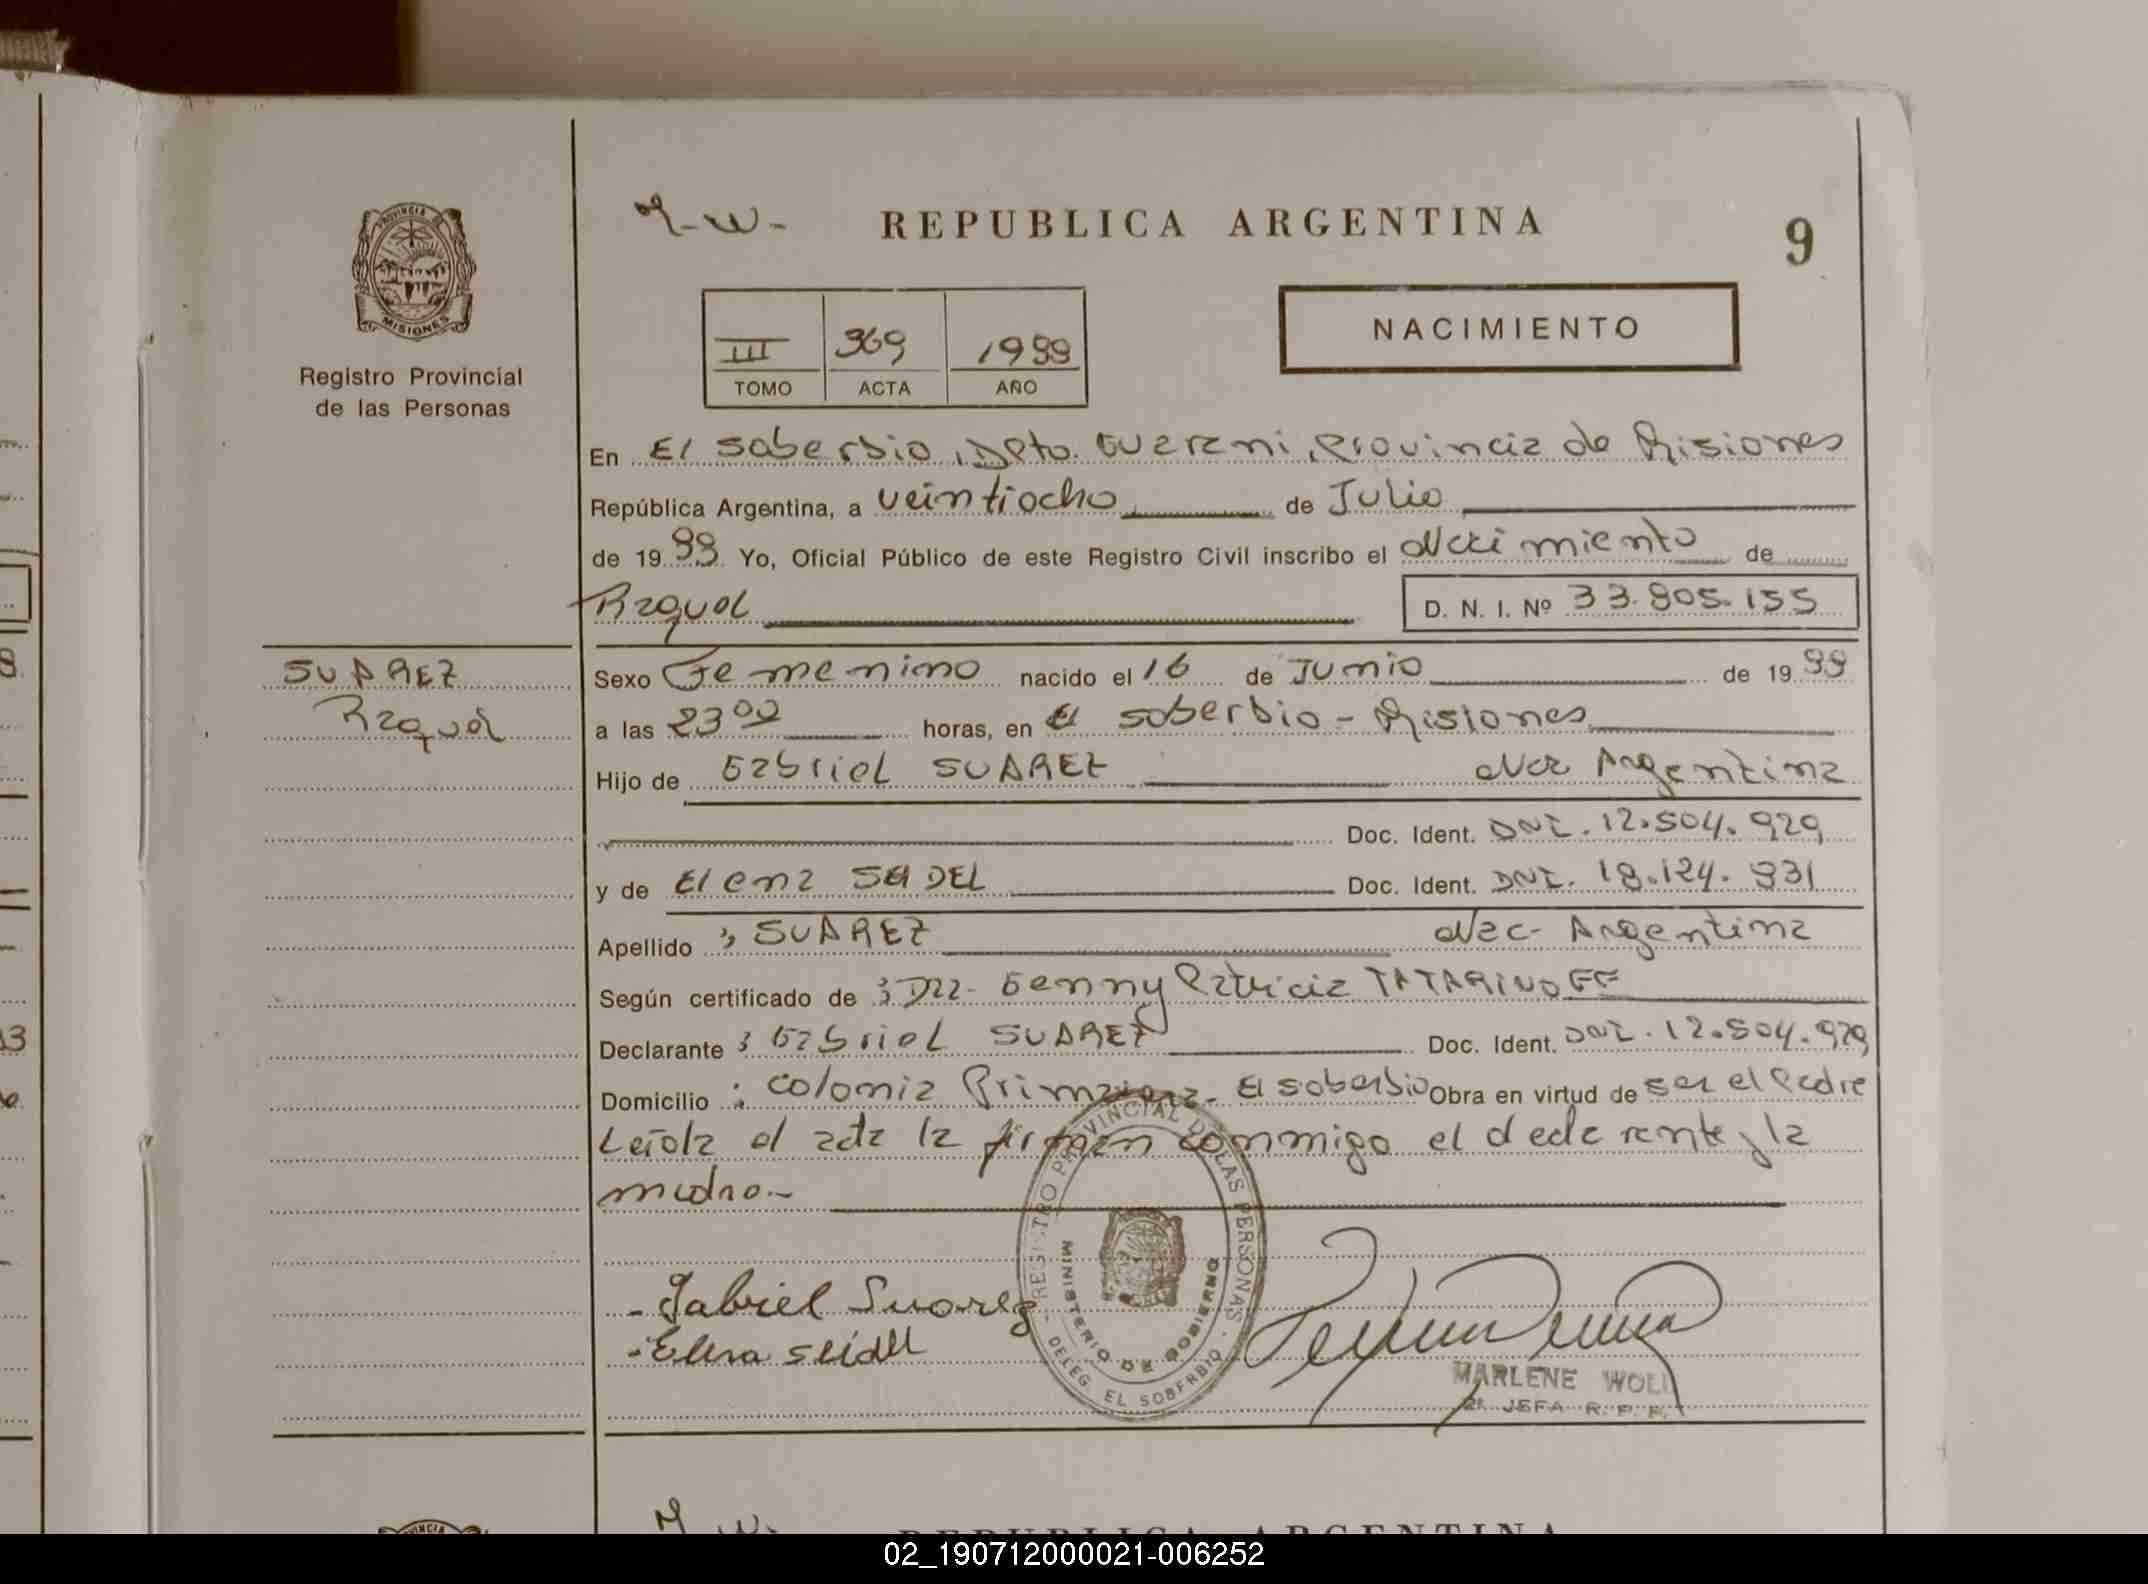 M-W- REPUBLICA ARGENTINA 9
PROVINCIA DE
MISIONES
Registro Provincial
de las Personas
III 369 1999
TOMO ACTA AÑO
NACIMIENTO
En El Soberbio, Dpto. Guarani, Provincia de Misiones
República Argentina, a veintiocho de Julio
de 19 99 Yo, Oficial Público de este Registro Civil inscribo el Nacimiento de
Raquel D. N. I. Nº 33.805.155
SUAREZ
Raquel
Sexo Femenino nacido el 16 de Junio de 19 99
a las 23 00 horas, en El Soberbio - Misiones
Hijo de Gabriel SUAREZ Nac Argentina
Doc. Ident. DNI. 12.504.929
y de Elena SEIDEL Doc. Ident. DNI. 18.124.931
Apellido ; SUAREZ Nac- Argentina
Según certificado de ; Dra- Genny Patricia TATARINOFF
Declarante ; Gabriel SUAREZ Doc. Ident. DNI. 12.504.929
Domicilio : Colonia Primavera- El Soberbio Obra en virtud de ser el Padre
Leída el acta la firman conmigo el declarante y la
madre.-
REGISTRO PROVINCIAL DE LAS PERSONAS - DELEG. EL SOBERBIO
MINISTERIO DE GOBIERNO
- Gabriel Suarez
- Elena Seidel
MARLENE WOLL
JEFA R. P. P.
PROVINCIA
M W-
REPUBLICA ARGENTINA
02_190712000021-006252